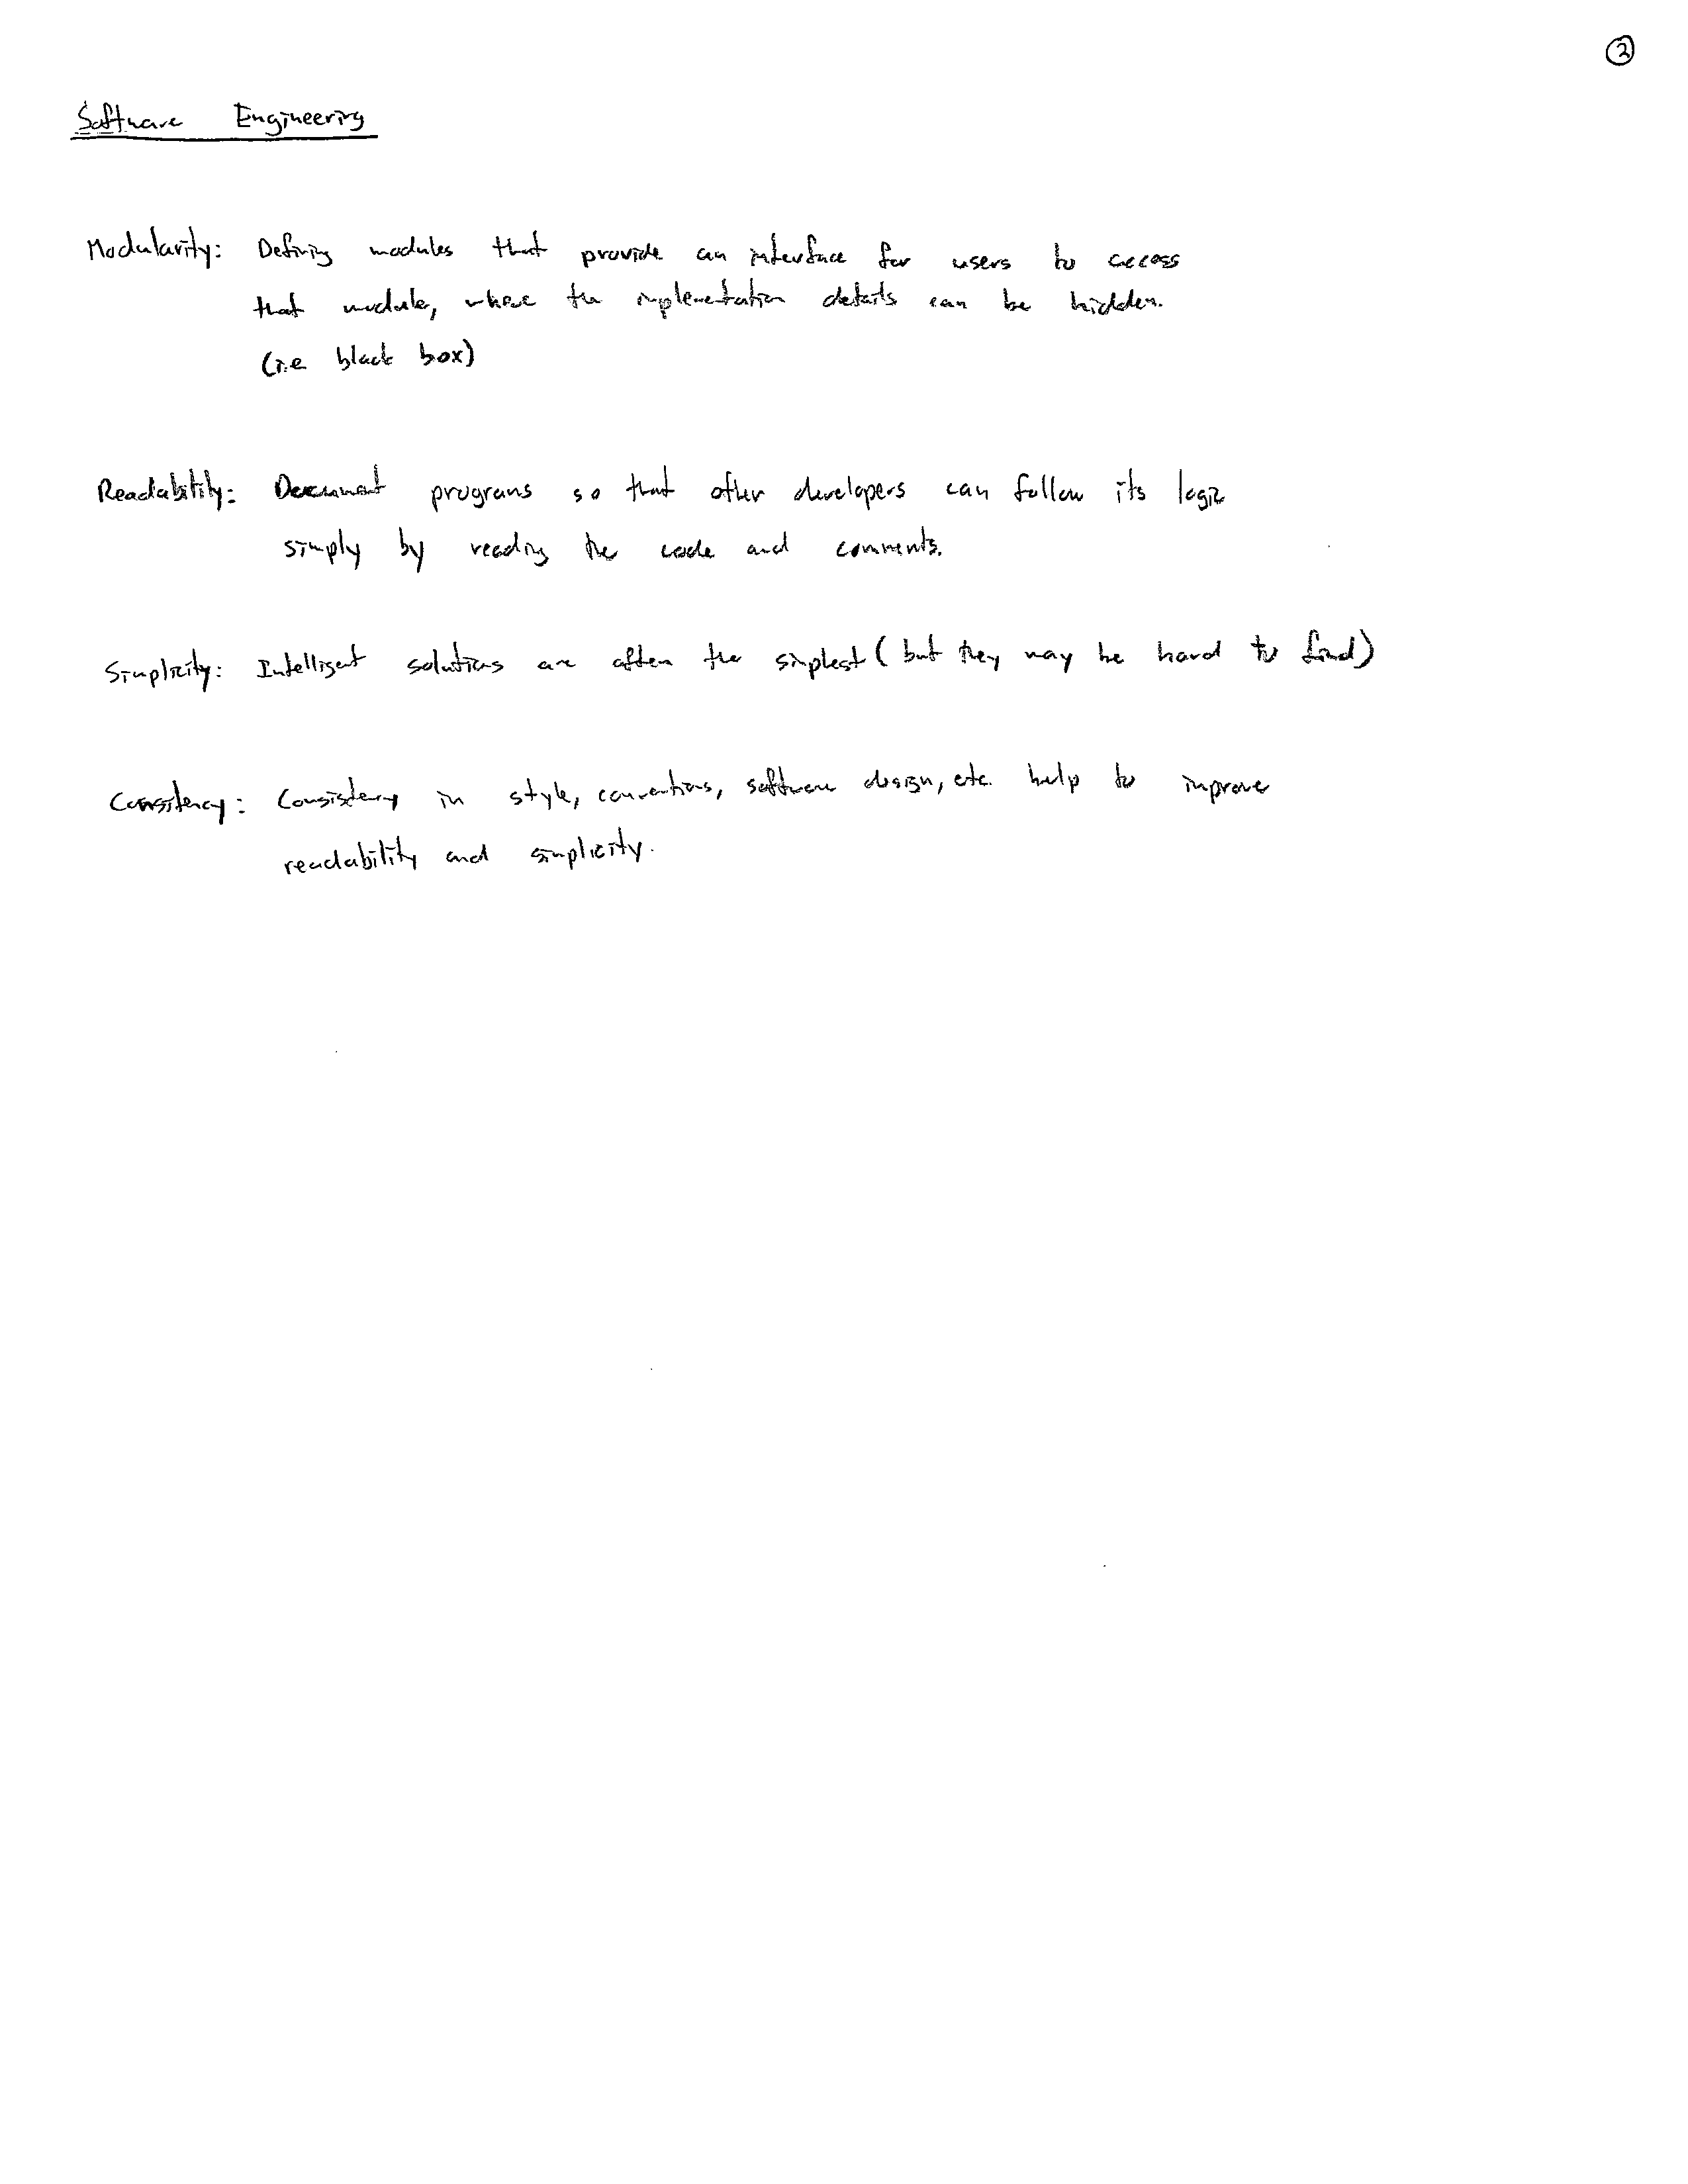 2
Software Engineering
Modularity: Defining modules that provide an interface for users to access
that module, where the implementation details can be hidden.
(i.e black box)
Readability: Document programs so that other developers can follow its logic
simply by reading the code and comments.
Simplicity: Intelligent solutions are often the simplest (but they may be hard to find)
Consistency: Consistency in style, conventions, software design, etc. help to improve
readability and simplicity.